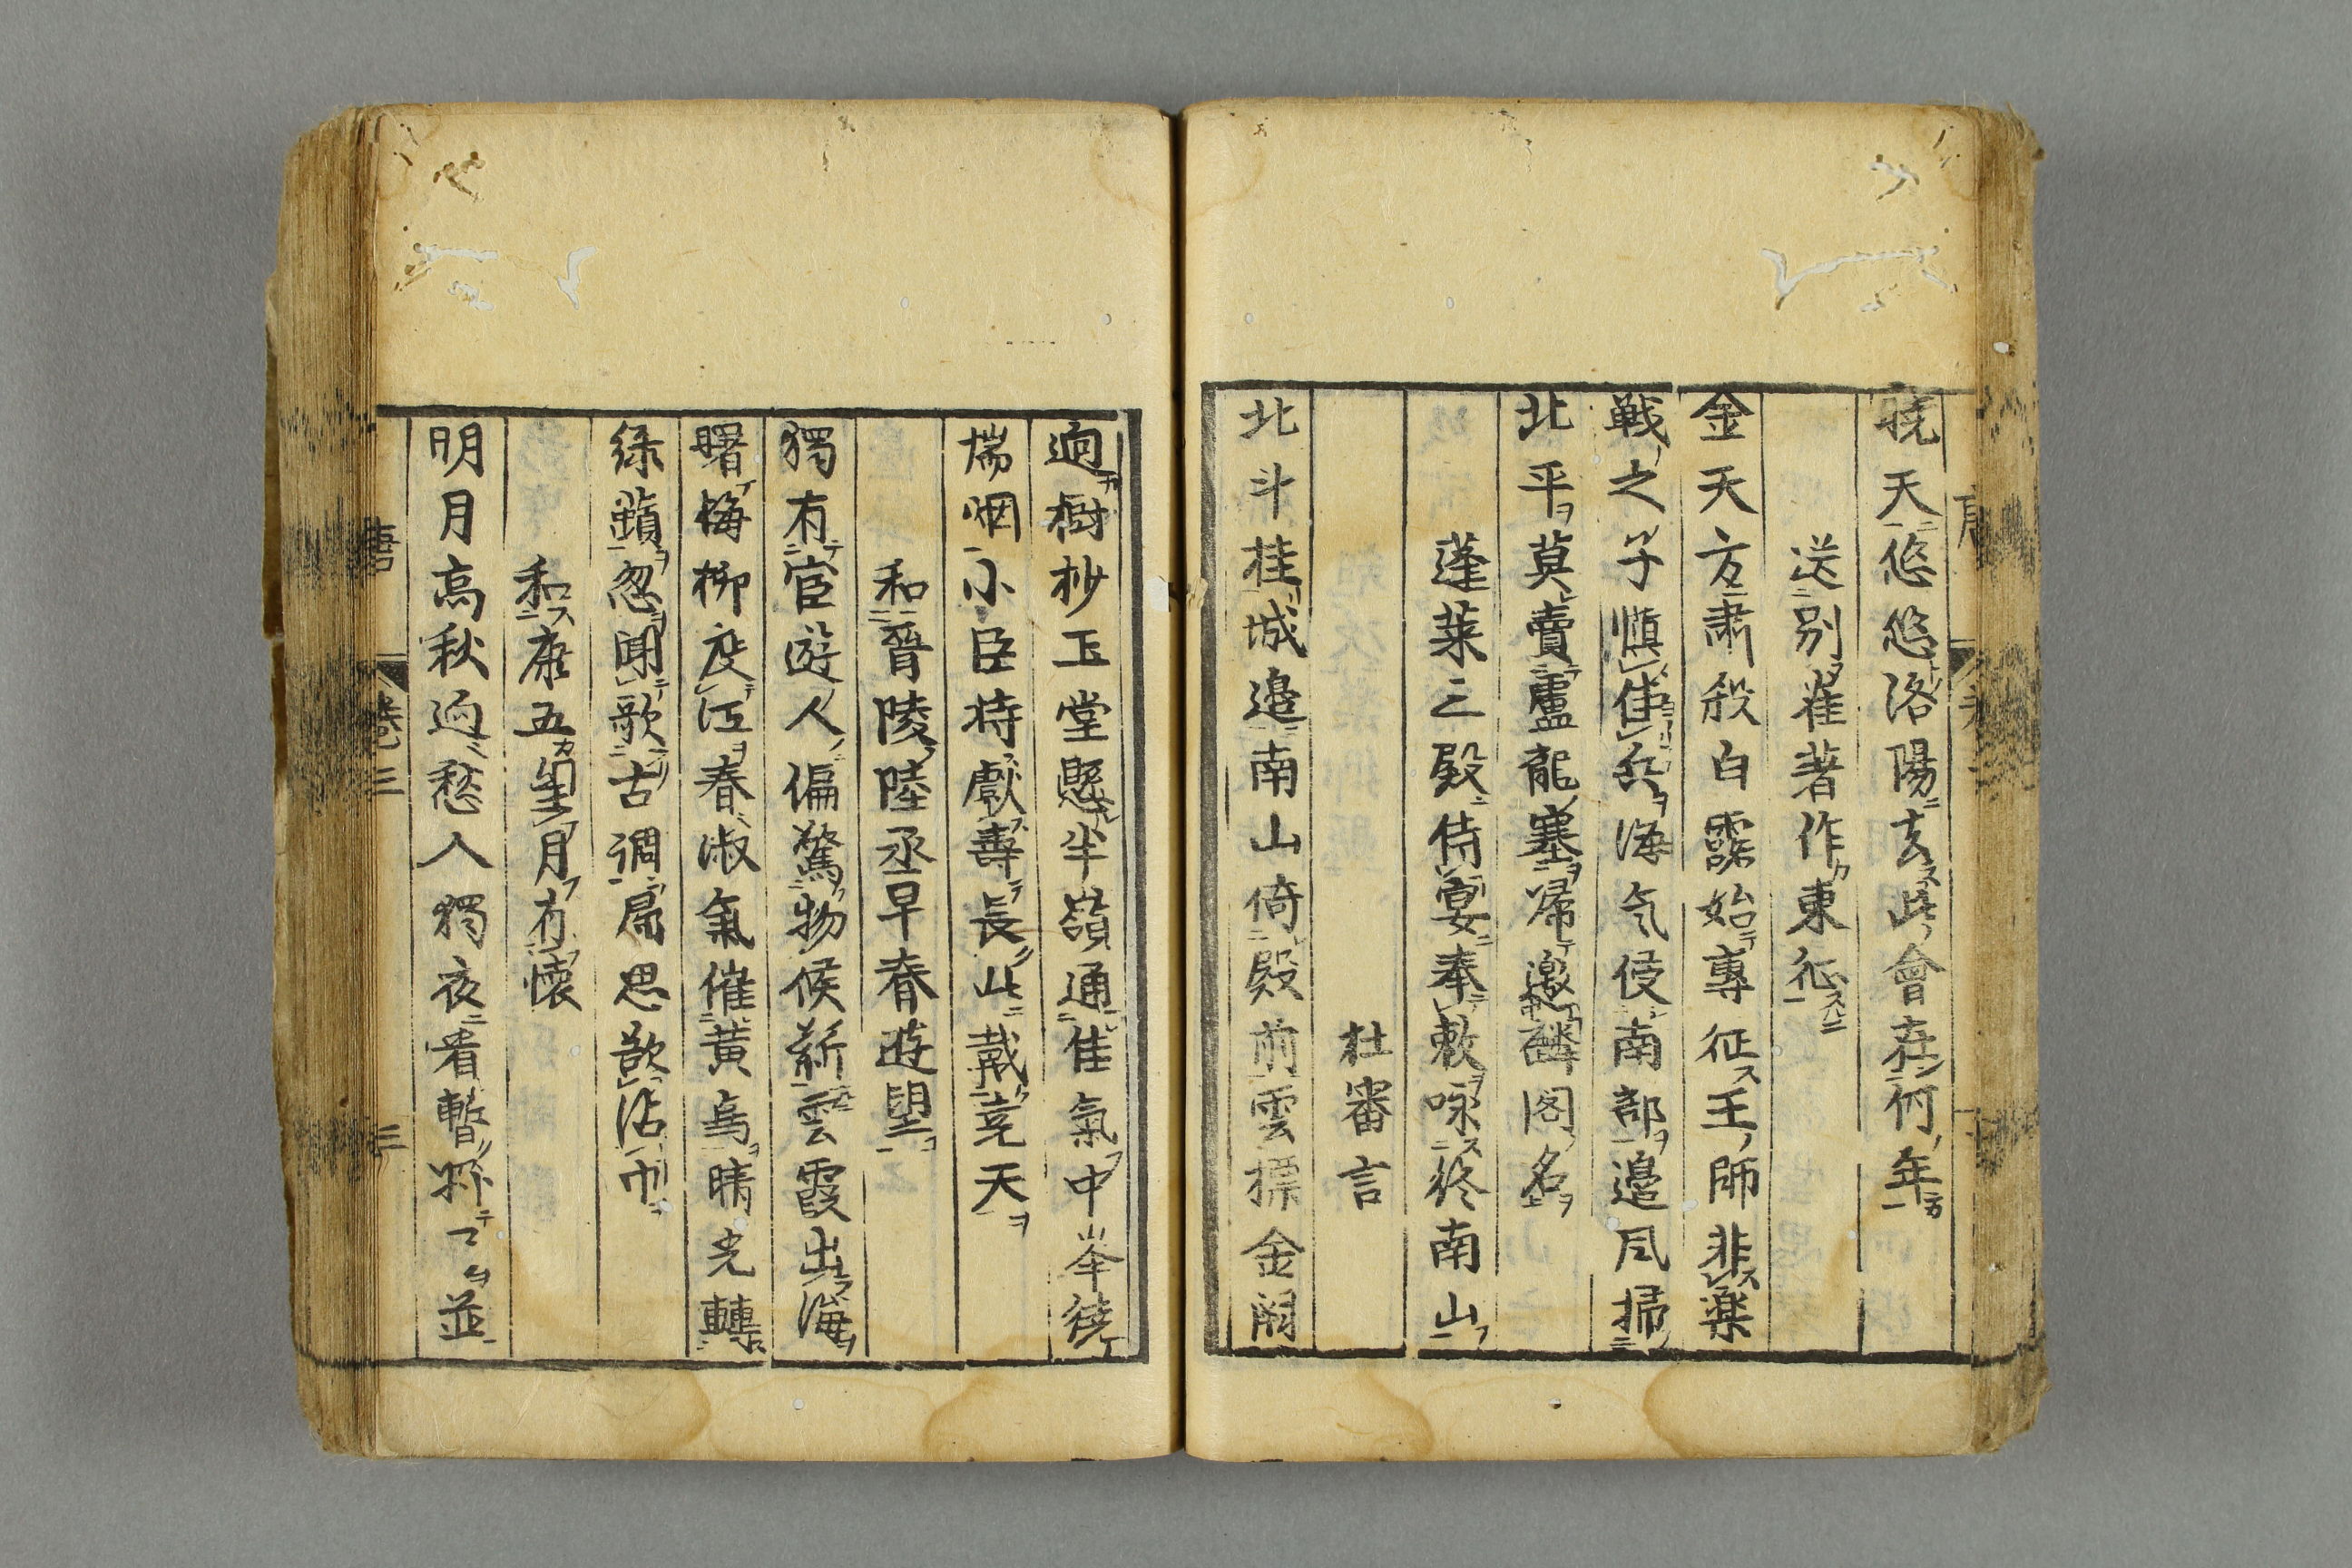 曉天悠悠洛陽去此會在何年
送別崔著作東征
金天方肅殺白露始專征王師非樂
戰之子愼佳兵海氣侵南部邊風掃
北平莫賣盧龍塞歸邀麟閣名
蓬萊三殿侍宴奉敕咏終南山
杜審言
北斗挂城邊南山倚殿前雲標金闕
迥樹杪玉堂懸半嶺通佳氣中峯繞
瑞烟小臣持獻壽長此戴堯天
和晉陵陸丞早春遊望
獨有宦遊人偏驚物候新雲霞出海
曙梅柳度江春淑氣催黃鳥晴光轉
綠蘋忽聞歌古調歸思欲沾巾
和康五望月有懷
明月高秋迥愁人獨夜看暫將弓並
唐
三
三